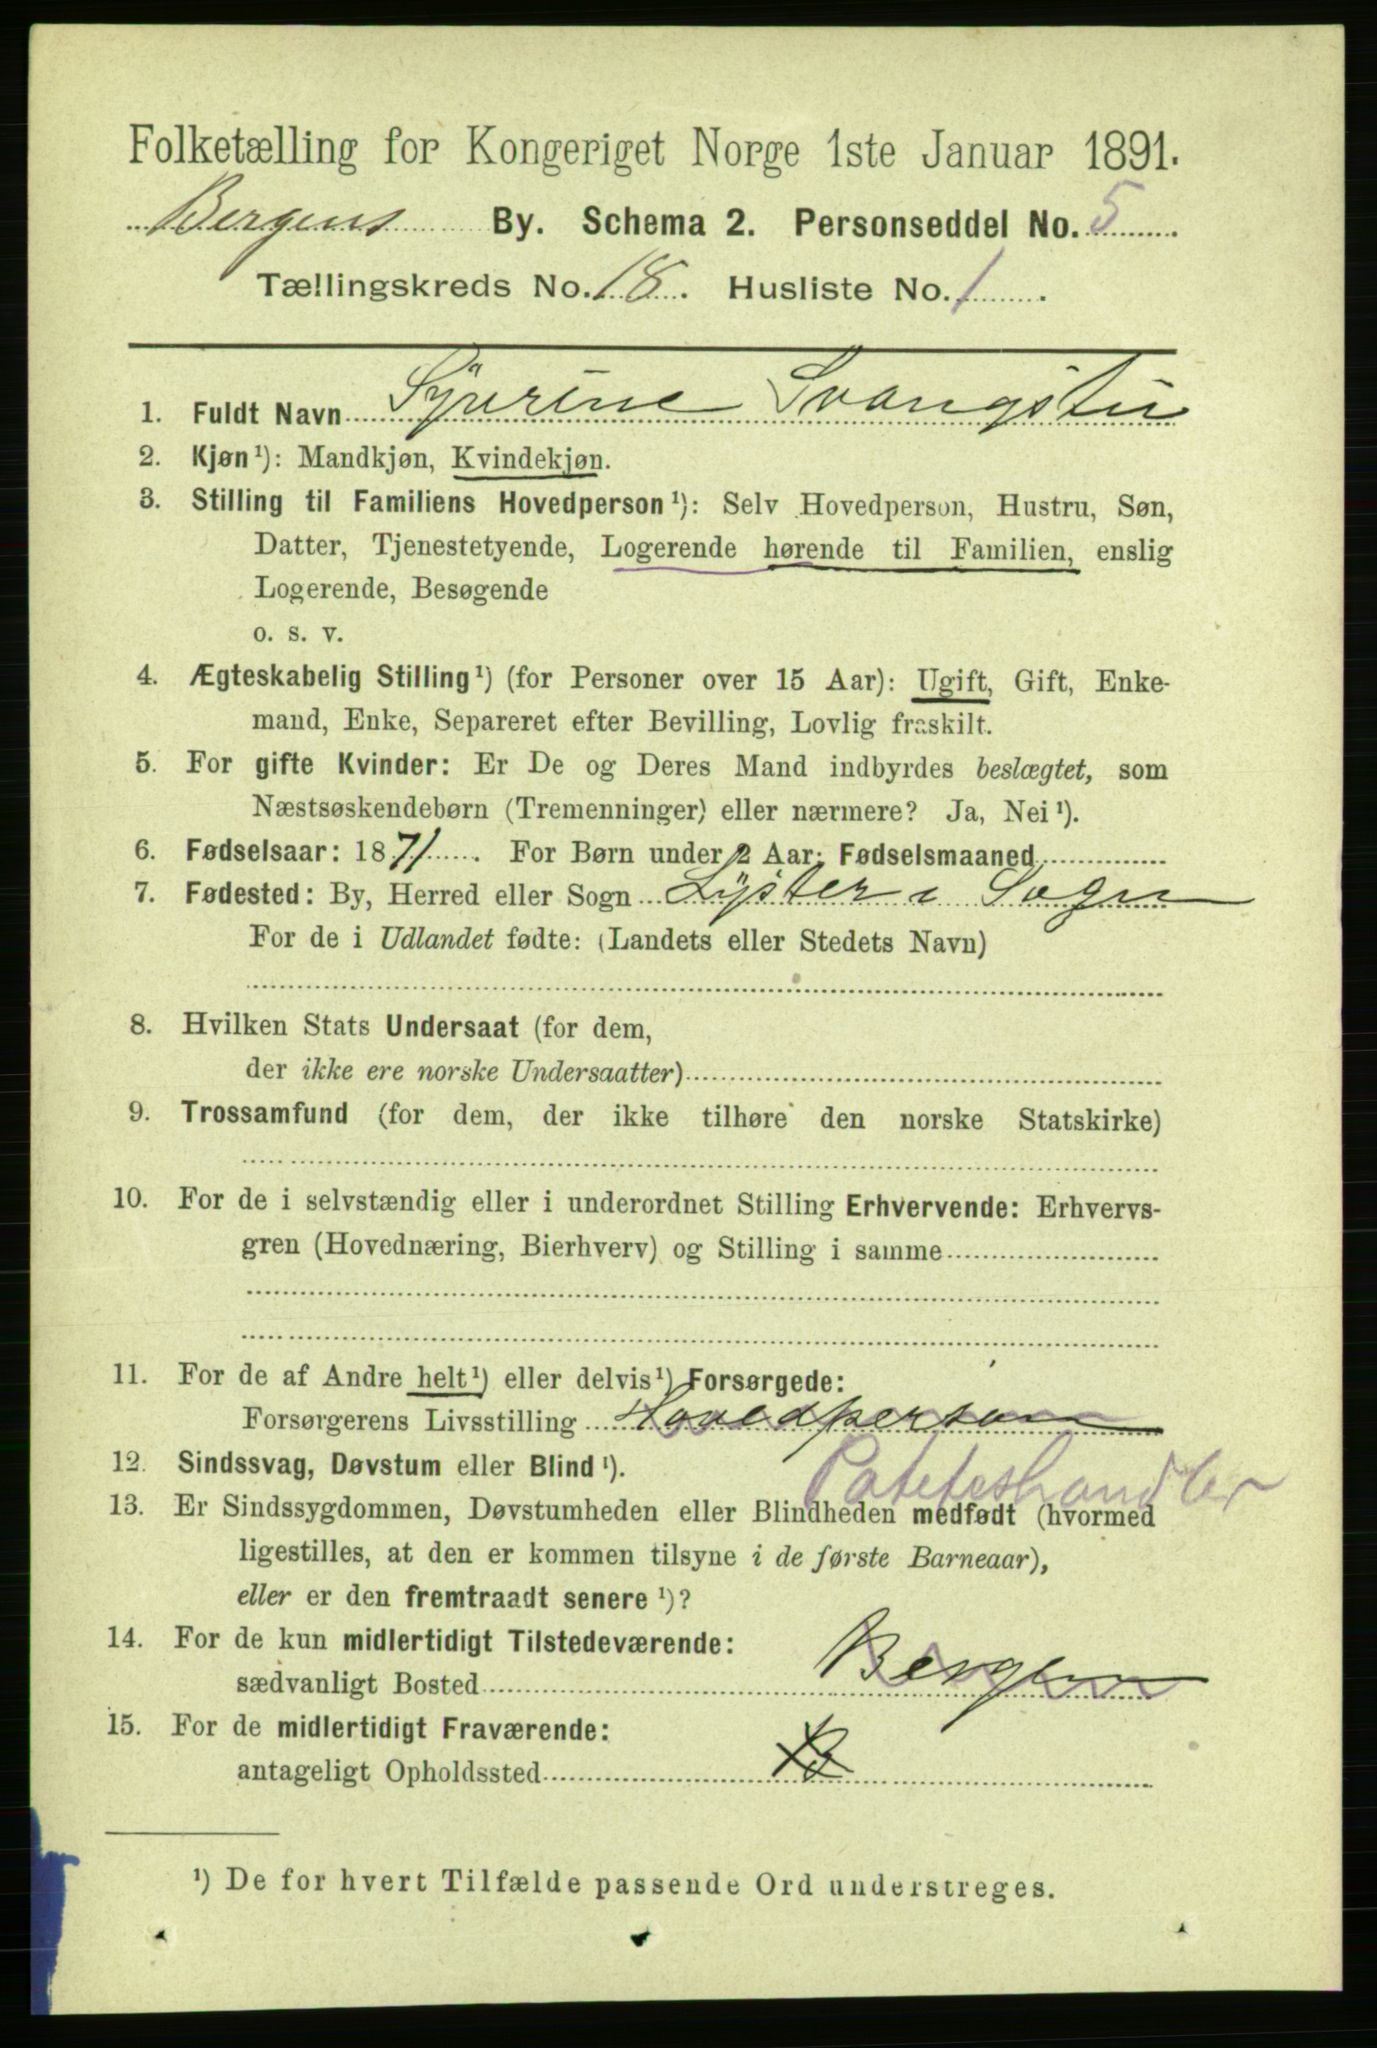 Folketælling for Kongeriget Norge 1ste Januar 1891.
Bergens By. Schema 2. Personseddel No. 5
Tællingskreds No. 18. Husliste No. 1.
1. Fuldt Navn Syverine Svangstu
2. Kjøn ¹): Mandkjøn, Kvindekjøn.
3. Stilling til Familiens Hovedperson ¹): Selv Hovedperson, Hustru, Søn,
Datter, Tjenestetyende, Logerende hørende til Familien, enslig
Logerende, Besøgende
o. s. v.
4. Ægteskabelig Stilling ¹) (for Personer over 15 Aar): Ugift, Gift, Enke-
mand, Enke, Separeret efter Bevilling, Lovlig fraskilt.
5. For gifte Kvinder: Er De og Deres Mand indbyrdes beslægtet, som
Næstsøskendebørn (Tremenninger) eller nærmere? Ja, Nei ¹).
6. Fødselsaar: 1871. For Børn under 2 Aar: Fødselsmaaned
7. Fødested: By, Herred eller Sogn Lyster i Sogn
For de i Udlandet fødte: (Landets eller Stedets Navn)
8. Hvilken Stats Undersaat (for dem,
der ikke ere norske Undersaatter)
9. Trossamfund (for dem, der ikke tilhøre den norske Statskirke)
10. For de i selvstændig eller i underordnet Stilling Erhvervende: Erhvervs-
gren (Hovednæring, Bierhverv) og Stilling i samme
11. For de af Andre helt ¹) eller delvis ¹) Forsørgede:
Forsørgerens Livsstilling Hovedperson
Poteteshandler
12. Sindssvag, Døvstum eller Blind ¹).
13. Er Sindssygdommen, Døvstumheden eller Blindheden medfødt (hvormed
ligestilles, at den er kommen tilsyne i de første Barneaar),
eller er den fremtraadt senere ¹)?
14. For de kun midlertidigt Tilstedeværende:
sædvanligt Bosted Bergen
15. For de midlertidigt Fraværende:
antageligt Opholdssted B
¹) De for hvert Tilfælde passende Ord understreges.